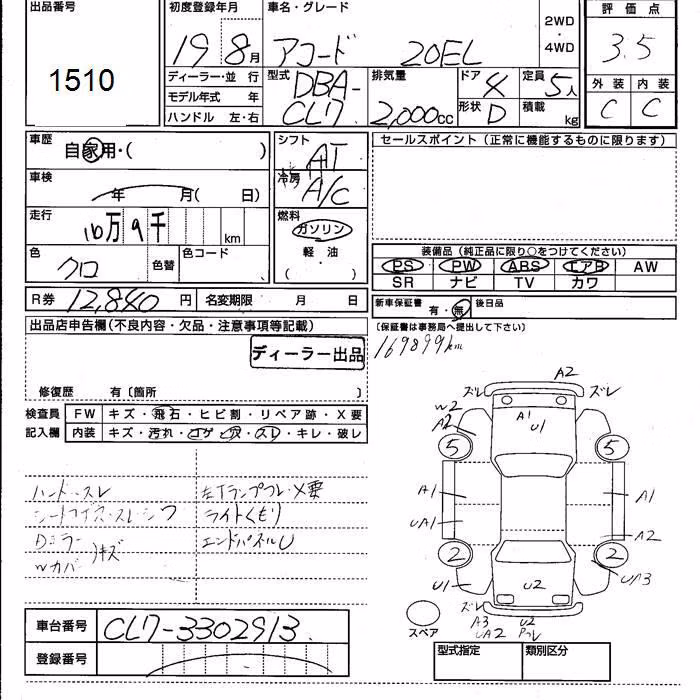 出品番号
1510
初度登録年月
19 8月
車名・グレード
アコード 20EL
2WD
・
4WD
評価点
3.5
外装 内装
C C
ディーラー・並行
モデル年式 年
ハンドル 左・右
型式
DBA-
CL7
排気量
2,000cc
ドア 4
形状 D
定員 5人
積載 kg
車歴
自家用・( )
車検
年 月( 日)
走行
16万9千 km
色
クロ
色替
色コード
シフト
AT
冷房
A/C
燃料
ガソリン
軽油
( ・ )
セールスポイント(正常に機能するものに限ります)
装備品(純正品に限り○をつけてください)
PS PW ABS エアB AW
SR ナビ TV カワ
R券 12,840円 名変期限 月 日
新車保証書 有・無 後日品
(保証書は事務局へ提出して下さい)
169899km
出品店申告欄(不良内容・欠品・注意事項等記載)
ディーラー出品
修復歴 有〔箇所 〕
検査員 FW キズ・飛石・ヒビ割・リペア跡・X要
記入欄 内装 キズ・汚れ・コゲ・穴・スレ・キレ・破レ
ハンドースレ
Dミラー
Wカバー
キズ
左Tランプフレ・X要
ライトくもり
エンドパネルU
ズレ A2 ズレ
W2
A2
A1
U1
5 5
A1 A1
UA1 A2
2 2
U1 U2 UA3
ズレ
A3
UA2
U2
スペア
車台番号 CL7-3302913
登録番号
型式指定 類別区分